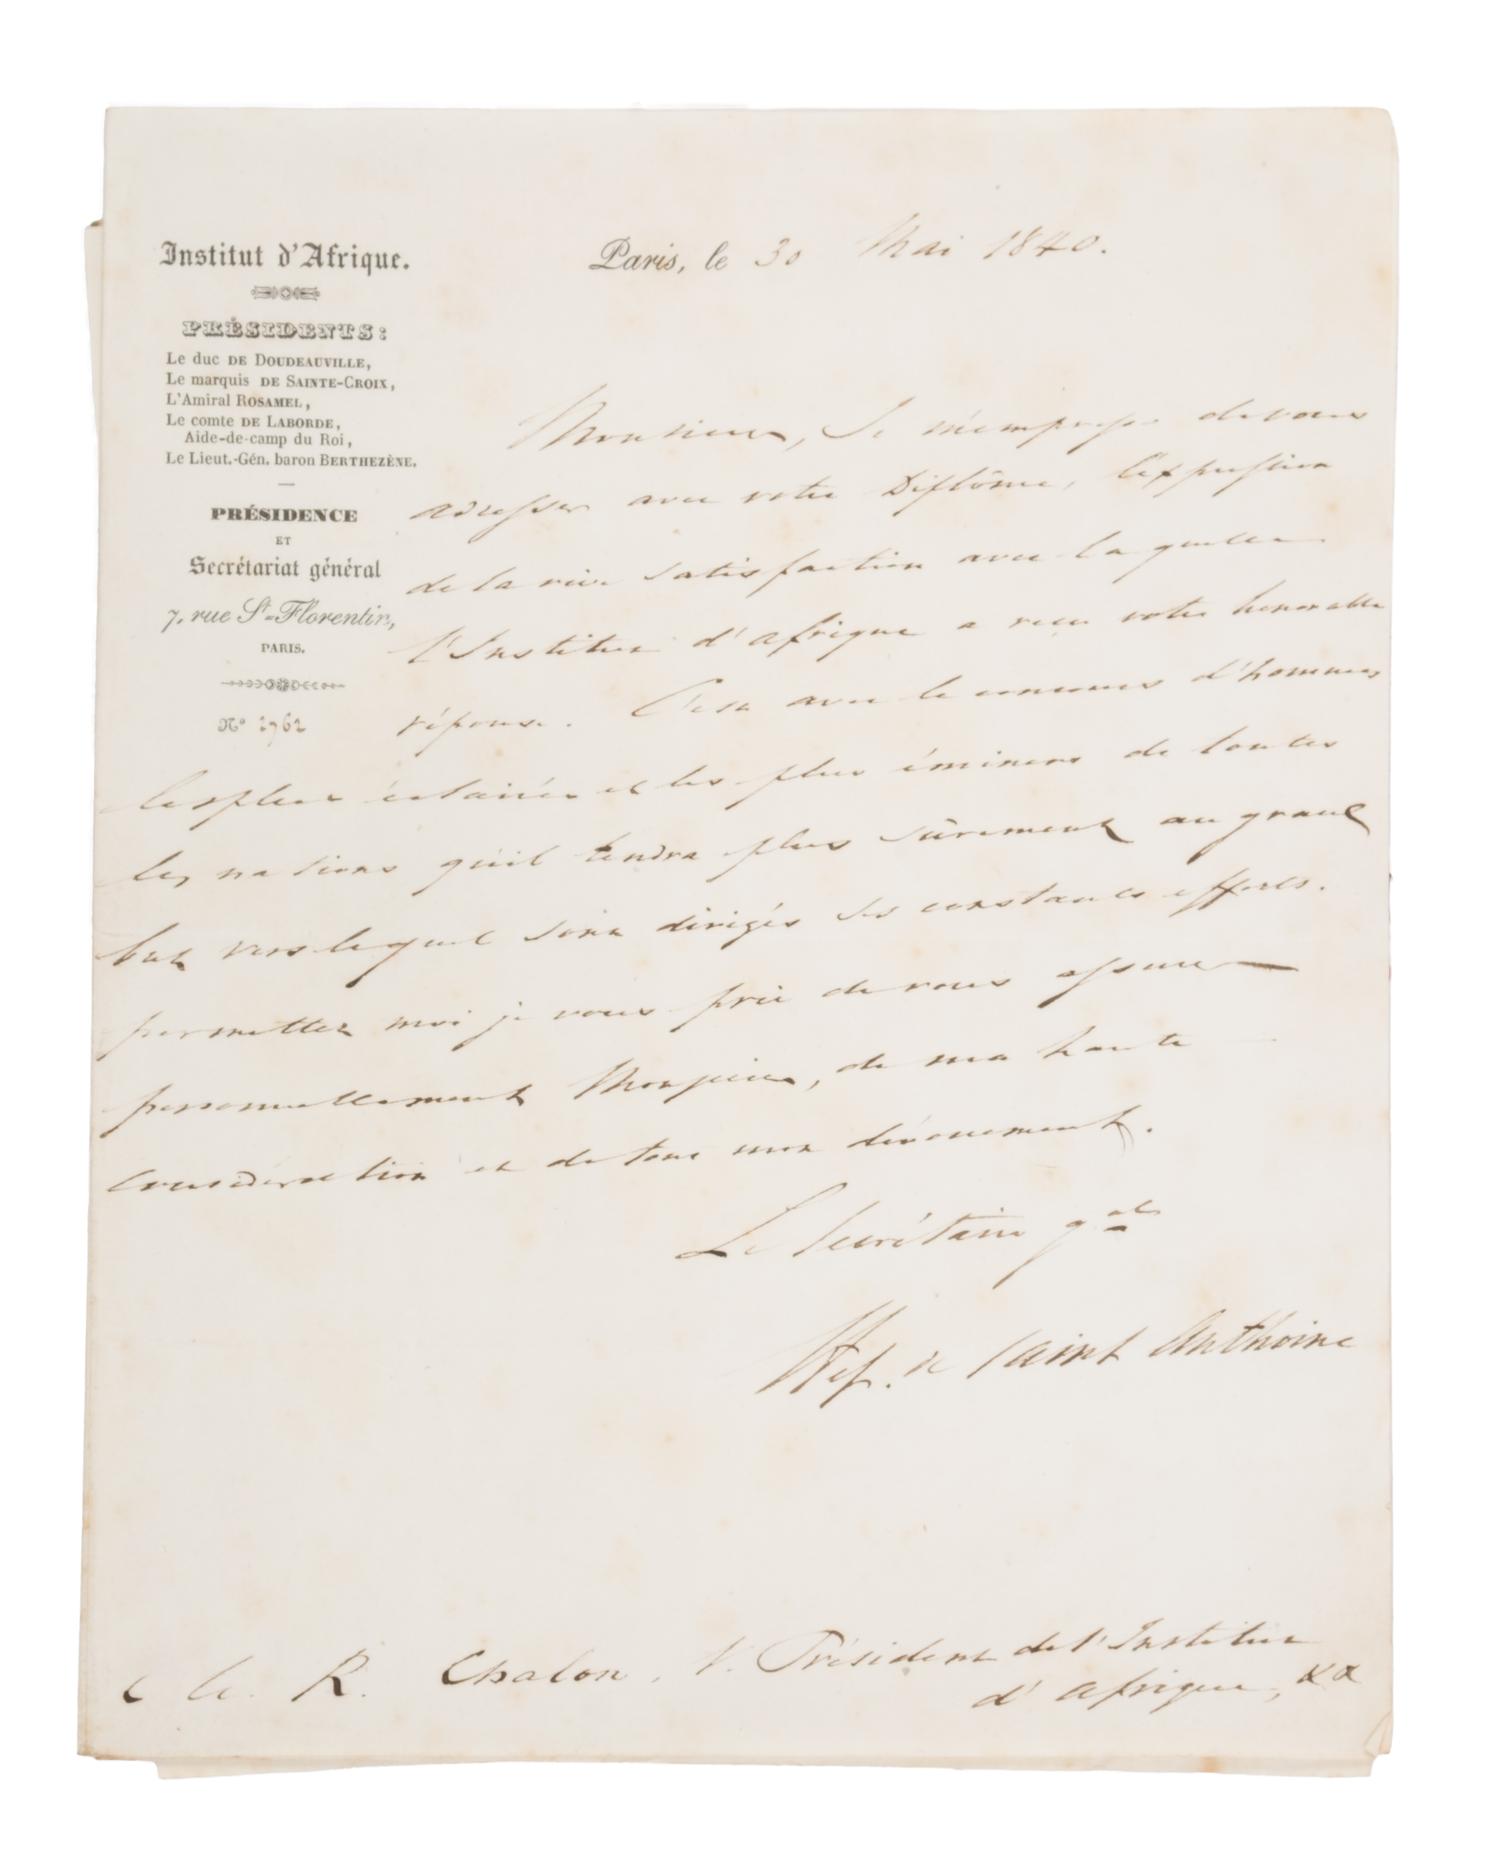 Institut d'Afrique.
PRÉSIDENTS:
Le duc DE DOUDEAUVILLE,
Le marquis DE SAINTE-CROIX,
L'Amiral ROSAMEL,
Le comte DE LABORDE,
Aide-de-camp du Roi,
Le Lieut.-Gén. baron BERTHEZÈNE.
PRÉSIDENCE
ET
Secrétariat général
7, rue St-Florentin,
PARIS.
No 2762
Paris, le 30 Mai 1840.
Monsieur, Je m'empresse de vous
adresser avec votre Diplôme, l'expression
de la vive satisfaction avec laquelle
l'Institut d'afrique a reçu votre honorable
réponse. C'est avec le concours d'hommes
les plus éclairés et les plus éminens de toutes
les nations qu'il tendra plus sûrement au grand
but vers lequel sont dirigés ses constants efforts.
permettez moi je vous prie de vous assurer
personnellement Monsieur, de ma haute
considération et de tout mon dévouement.
Le Secrétaire gal
Hip. de Saint Anthoine
R. Chalon, V. Président de l'Institut
d'afrique, &a